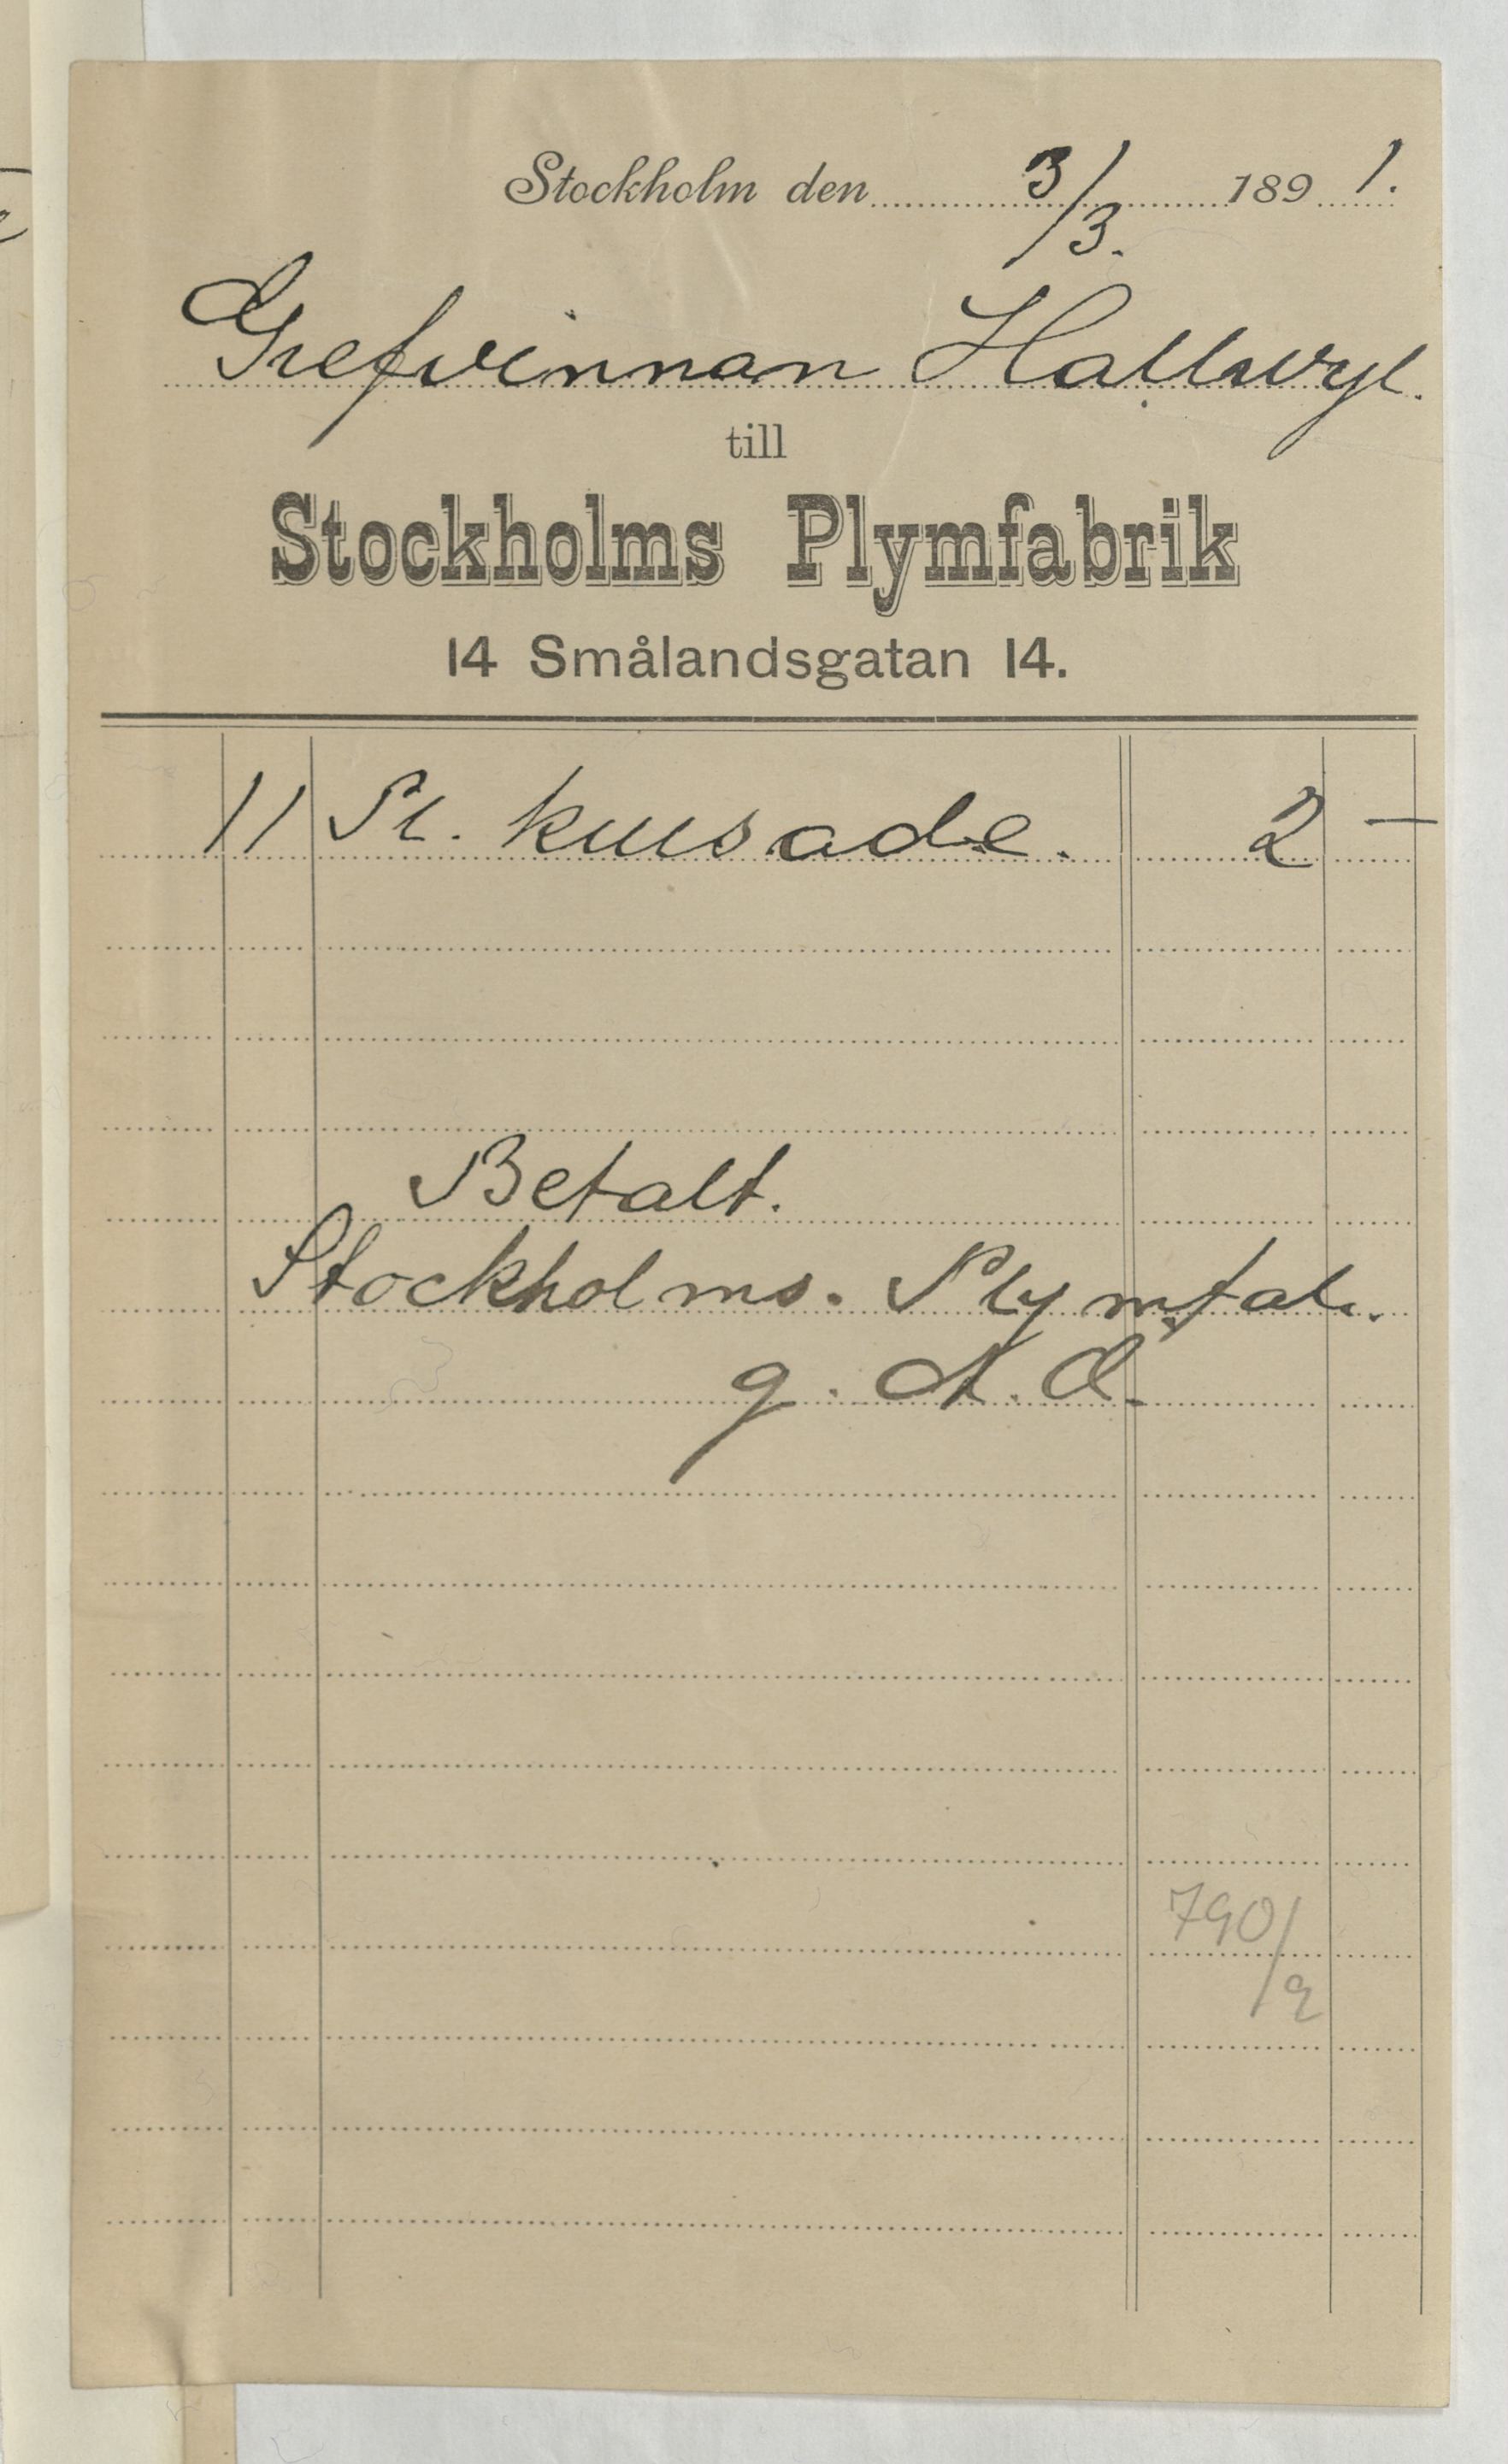 Stockholm den 3/3. 1891.
Grefvinnan Hallwyl.
till
Stockholms Plymfabrik
14 Smålandsgatan 14.
11 Pl. krusade. 2 —
Betalt.
Stockholms. Plymfab.
g. A. O.
790/2